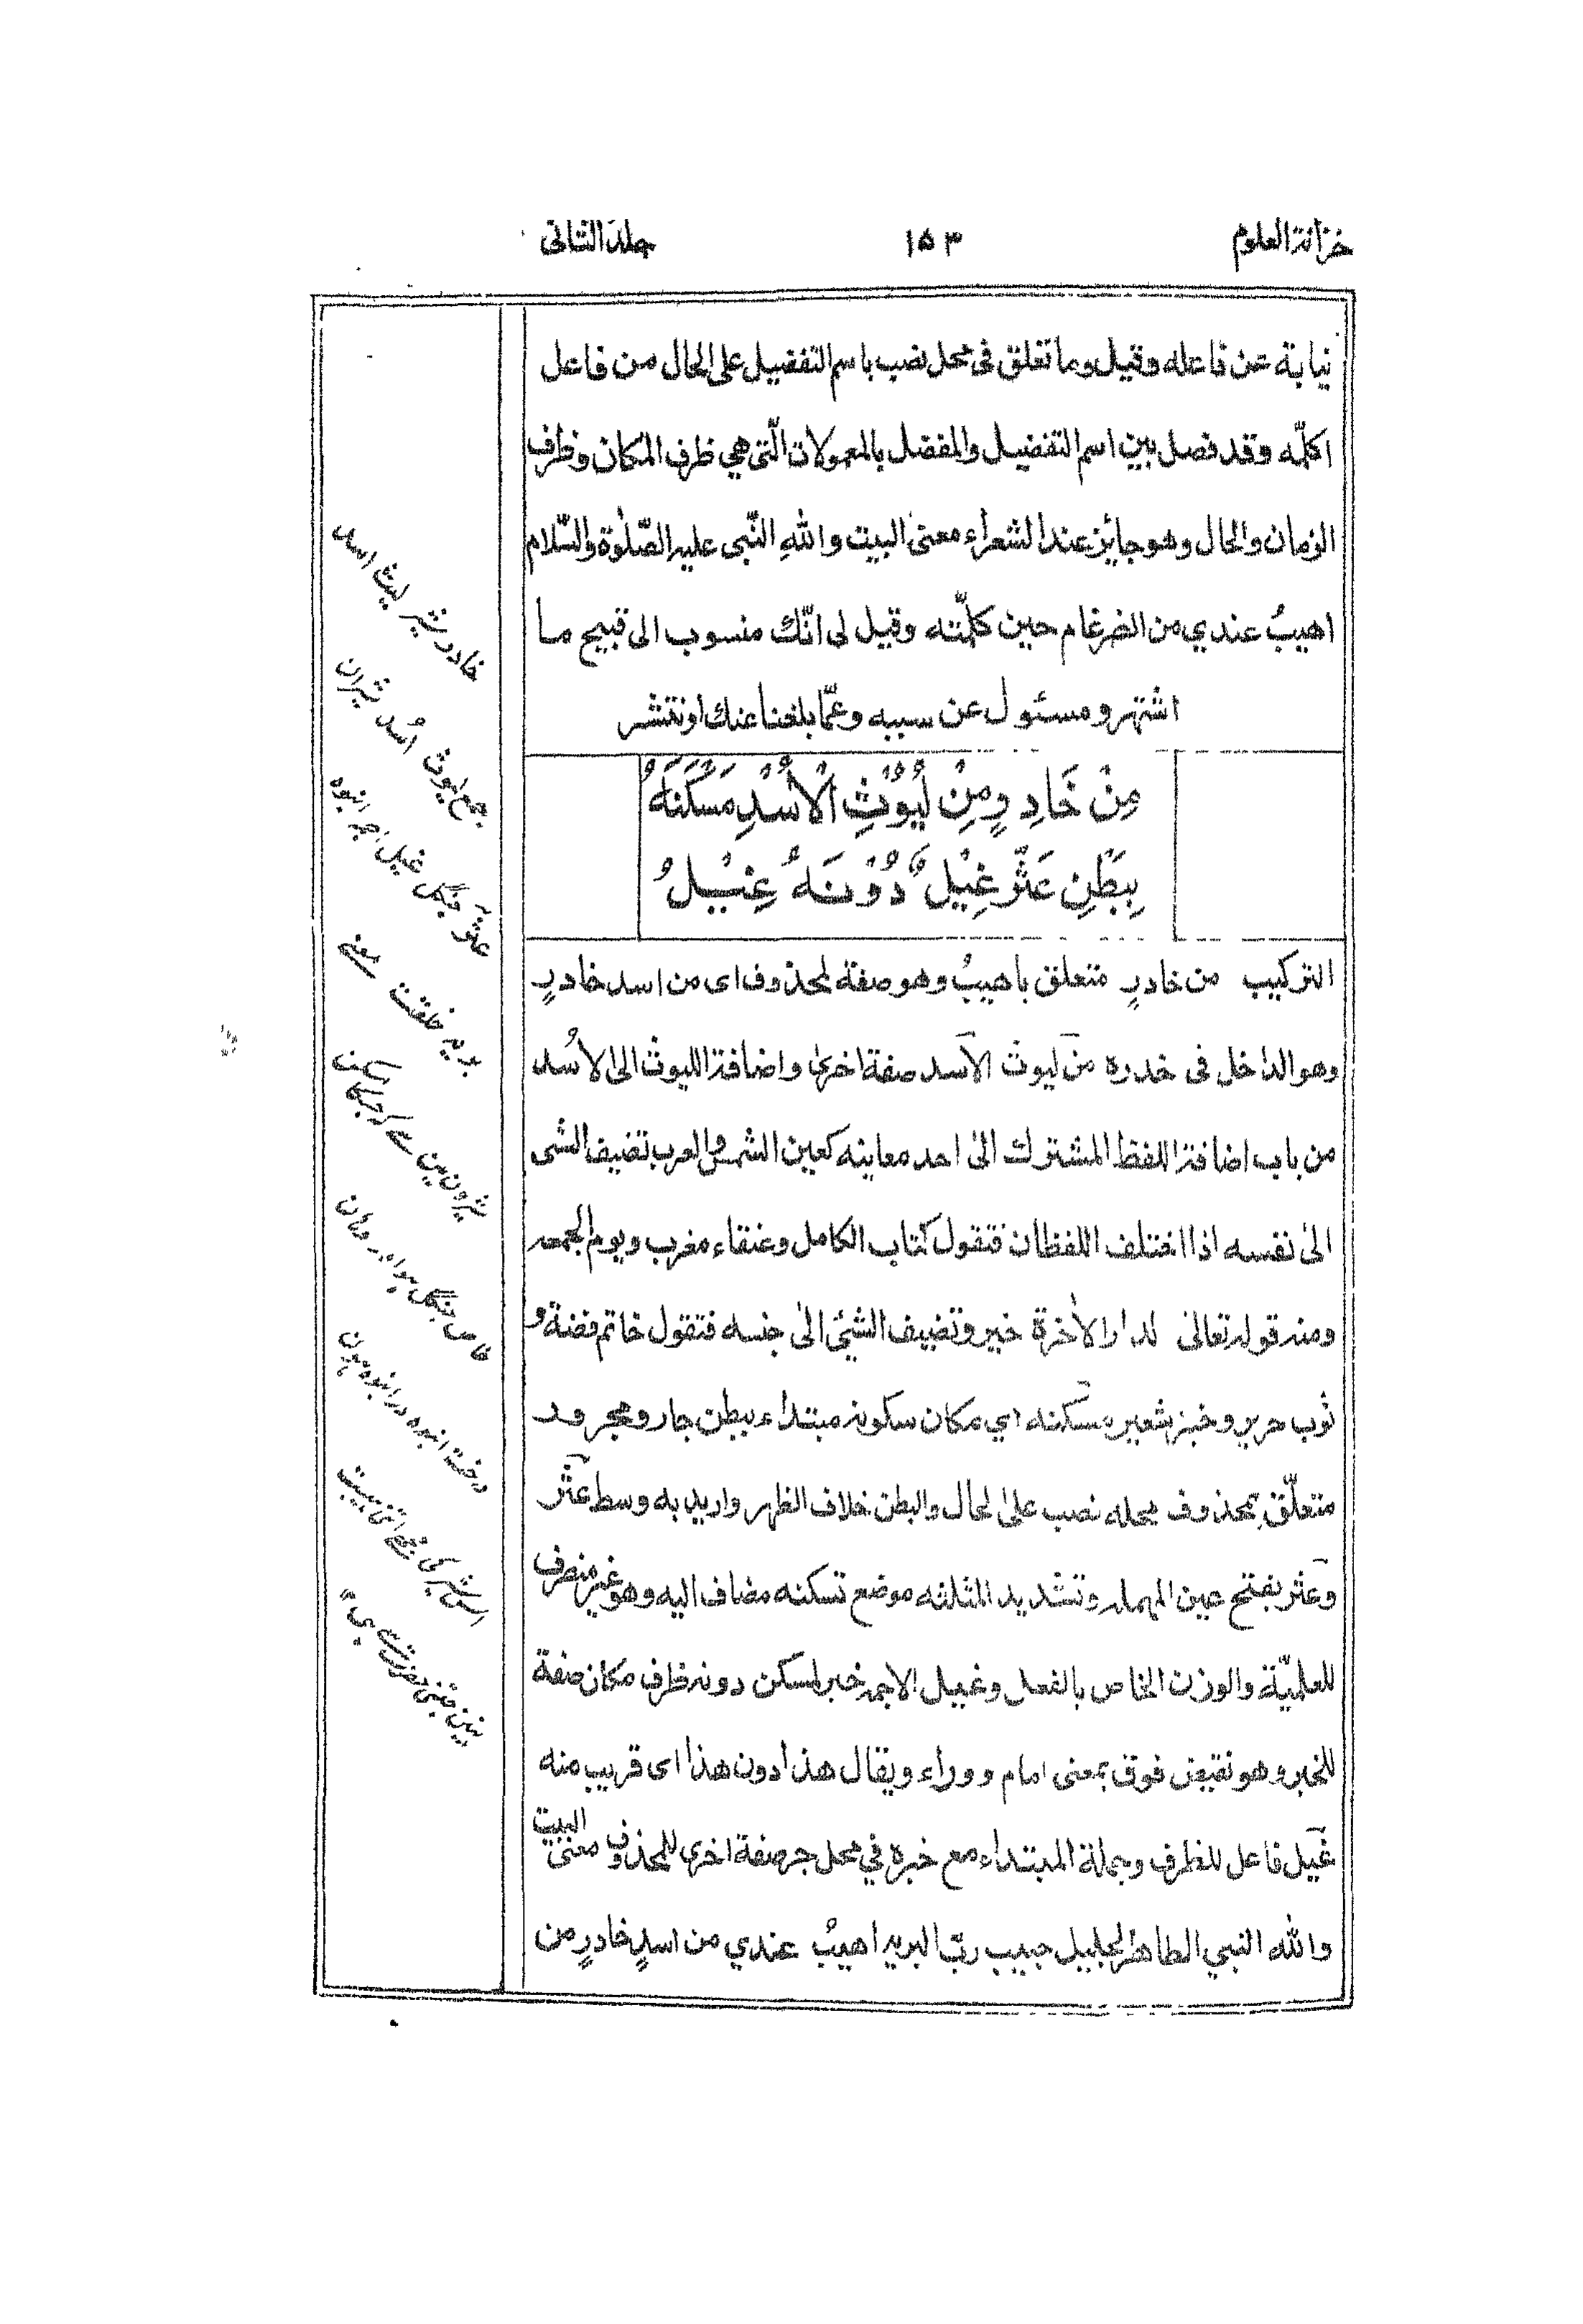 خزانة العلوم
١٥٣
جلد الثانى
نيابة عن فاعله وقيل وما تعلق فى محل نصب باسم التفضيل على الحال من فاعل
اكلّمه وقد فصل بين اسم التفضيل والمفضل بالمعمولات الّتى هي ظرف المكان وظرف
الزمان والحال وهو جايز عند الشعراء معنى البيت واللهِ النّبى عليه الصّلوٰة والسّلام
اهيبُ عندي من الضرغام حين كلّمته وقيل لى انّك منسوب الى قبيح ما
اشتهر ومسئول عن سببه وعمّا بلغنا عنك او نتشر
مِنْ خَادِرٍ مِنْ لُيُوْثِ الْاُسْدِ مَسْكَنُهٗ
بِبَطْنِ عَثَّرَ غِيْلٌ دُوْنَهٗ غِيْلُ
التركيب من خادرٍ متعلق باهيبُ وهو صفة لمحذوف اى من اسد خادرٍ
وهو الداخل فى خدره من ليوث الاسد صفة اخرىٰ واضافة الليوث الى الاُسد
من باب اضافة اللفظ المشترك الىٰ احد معاينه كعين الشمس والعرب تضيف الشى
الىٰ نفسه اذا اختلف اللفظان فتقول كتاب الكامل وعنقاء مغرب ويوم الجمعه
ومنه قوله تعالىٰ لدار الاٰخرة خير وتضيف الشيئ الىٰ جنسه فتقول خاتم فضة و
ثوب حرير وخبز شعير مسكنه اي مكان سكونه مبتداء ببطن جار ومجرور
متعلّق بمحذوف محله نصب علىٰ لحال والبطن خلاف الظهر واريد به وسط عثّر
وعثر بفتح عين المهمله وتشديد المثلثه موضع تسكنه مضاف اليه وهو غير منصرف
للعلميّة والوزن الخاص بالفعل وغييل الاجمه خبر لمسكن دونه ظرف مكان صفة
للخبر وهو نقيض فوق بمعنى امام ووراء ويقال هذا دون هذا اى قريب منه
غيل فاعل للظرف وجملة المبتداء مع خبره في محل جر صفة اخرى للمحذوف معنى البيت
والله النبي الطاهر الجليل حبيب ربّ البريه اهيبُ عندي من اسدٍ خادرٍ من
خادر شير ليث اسد
جمع ليوث اُسد شيران
عثر جنگل غيل اجمه انبوه